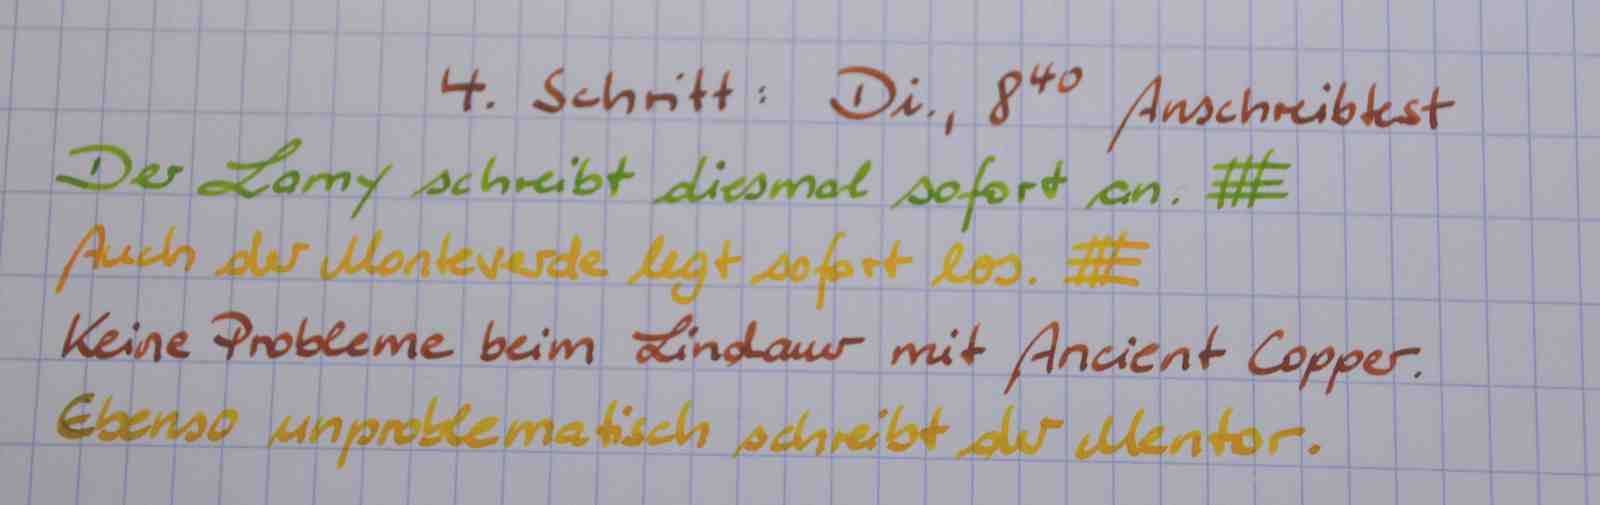 4. Schritt: Di., 8⁴⁰ Anschreibtest
Der Lamy schreibt diesmal sofort an.
Auch der Monteverde legt sofort los.
Keine Probleme beim Lindauer mit Ancient Copper.
Ebenso unproblematisch schreibt der Mentor.